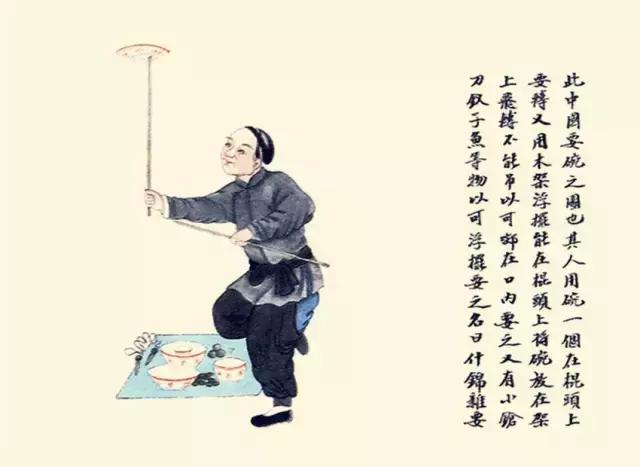 此中國耍碗之圖也其人用碗一個在棍頭上
耍轉又用木架浮擺能在棍頭上将碗放在架
上飛轉不能吊以可啣在口內耍之又有小鎗
刀釵子魚等物以可浮擺耍之名曰什錦雜耍